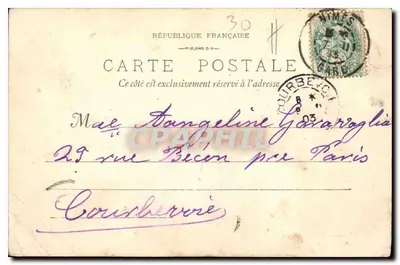 30
RÉPUBLIQUE FRANÇAISE
NIMES
CARTE POSTALE
GARD
Ce côté est exclusivement réservé à l'adresse
COURBEVOIE
8
03
Melle Aangeline Garavoglia
29 rue Bécon pre Paris
Courbevoie